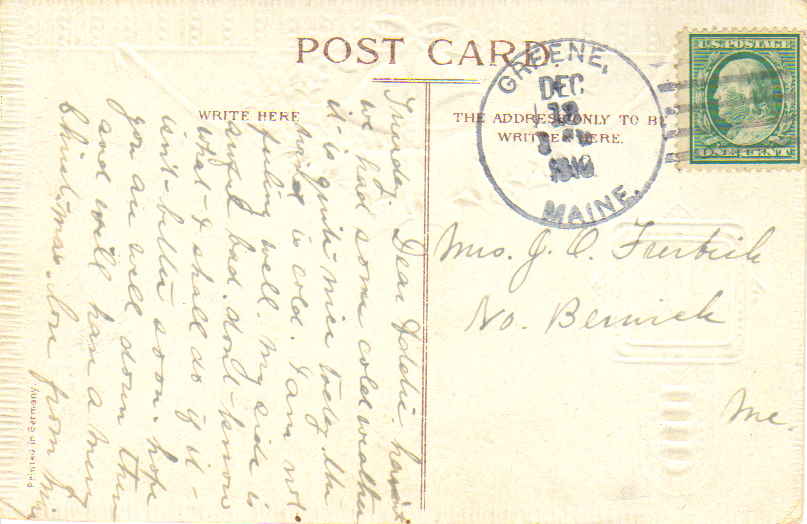 POST CARD
WRITE HERE
THE ADDRESS ONLY TO BE
WRITTEN HERE.
GREENE,
DEC
1910
MAINE.
U.S. POSTAGE
ONE CENT
Mrs. J. O.
No. Berwick
Me.
Tuesday. Dear
we had some cold weather
it is quite nice today the
wind is cold. I am not
feeling well. My side is
awful bad. dont know
what I shall do if it
isn't better soon. hope
you are well down there
and will have a merry
Christmas. Love from
Printed in Germany.